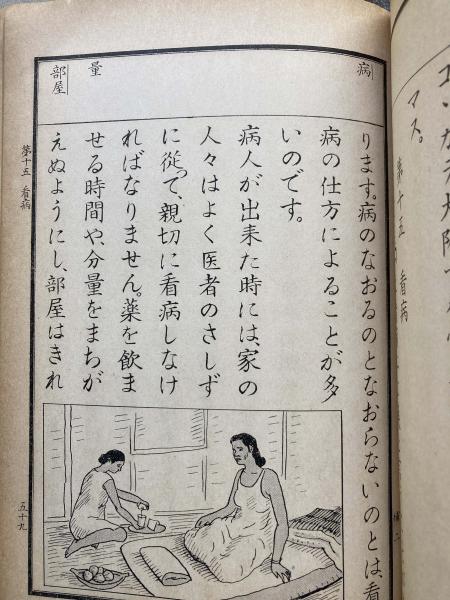 マス。
第十五 看病
病
量
部屋
ります。病のなおるのとなおらないのとは、看
病の仕方によることが多
いのです。
病人が出来た時には、家の
人々はよく医者のさしず
に従って、親切に看病しなけ
ればなりません。薬を飲ま
せる時間や、分量をまちが
えぬようにし、部屋はきれ
第十五 看病
五十九